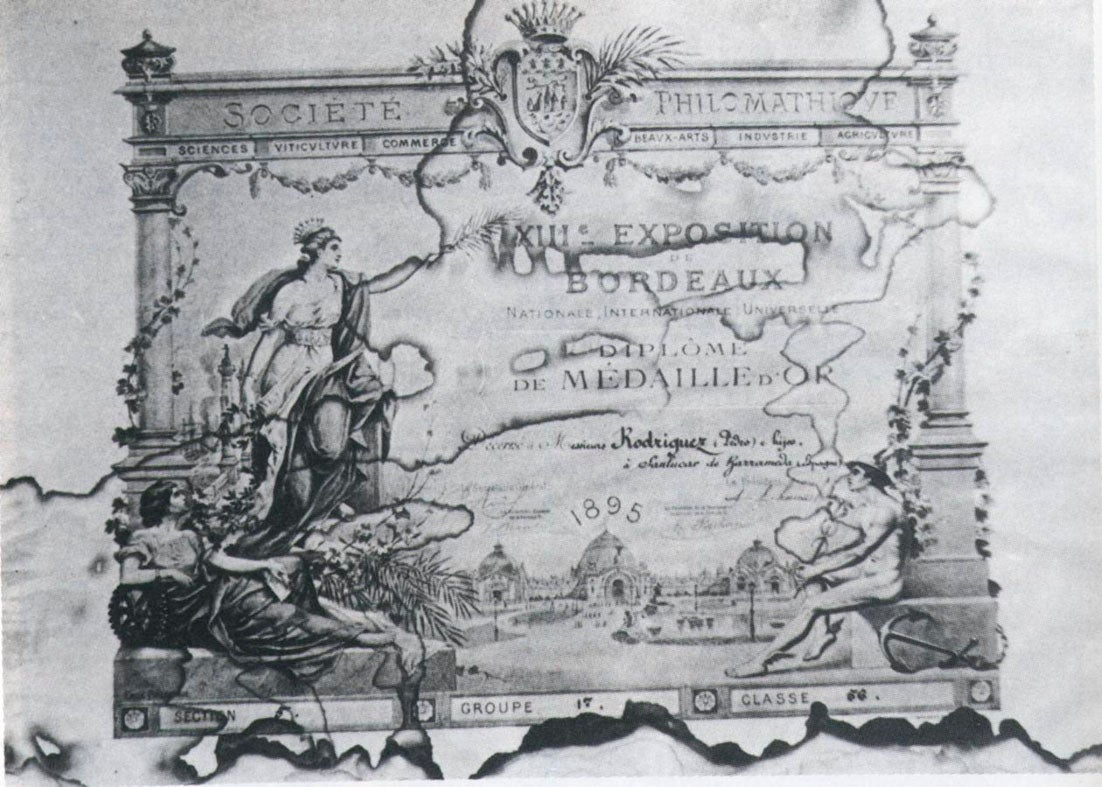 SOCIÉTÉ PHILOMATHIQVE
SCIENCES VITICVLTVRE COMMERCE BEAVX-ARTS INDVSTRIE AGRICVLTVRE
XIIIe EXPOSITION
DE
BORDEAUX
NATIONALE, INTERNATIONALE, UNIVERSELLE
DIPLÔME
DE MÉDAILLE D'OR
Décerné à Messieurs Rodriguez (Pedro) e hijos,
à Sanlucar de Barrameda (Espagne)
1895
SECTION GROUPE 17. CLASSE 66.